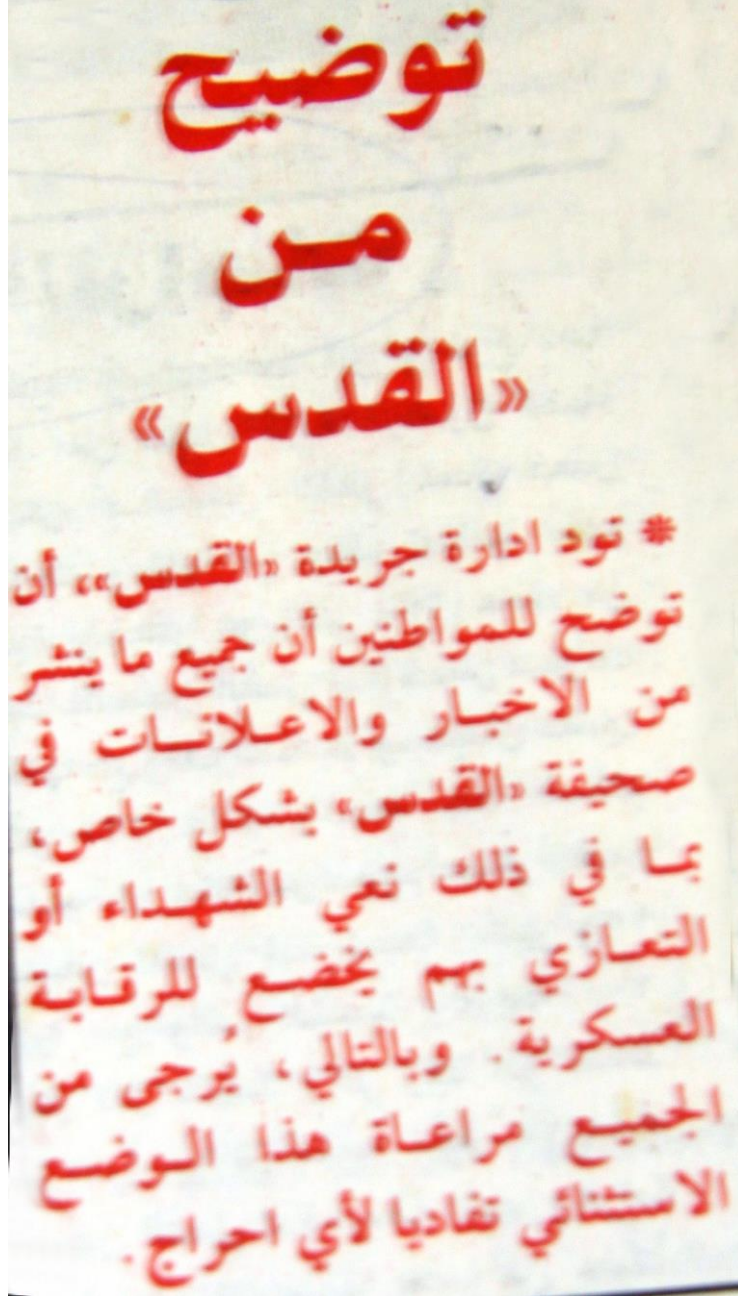 توضيح
من
«القدس»
* تود ادارة جريدة «القدس»» أن
توضح للمواطنين أن جميع ما ينشر
من الاخبار والاعلانات في
صحيفة «القدس» بشكل خاص،
بما في ذلك نعي الشهداء أو
التعازي بهم يخضع للرقابة
العسكرية. وبالتالي، يُرجى من
الجميع مراعاة هذا الوضع
الاستثنائي تفاديا لأي احراج.